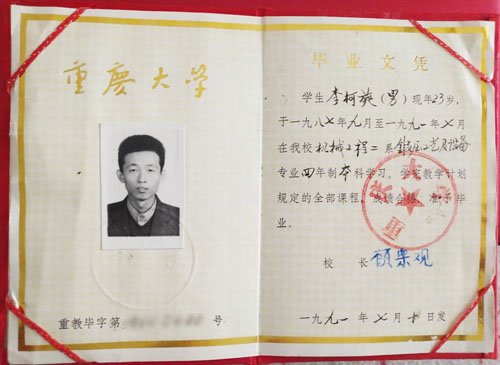 重慶大学
重教毕字第 号
毕业文凭
学生李柯族(男)现年23岁,
于一九八七年九月至一九九一年七月
在我校机械工程二系锻压工艺及设备
专业四年制本科学习,学完教学计划
规定的全部课程,成绩合格,准予毕
业。
校 长
一九九一年七月十日发